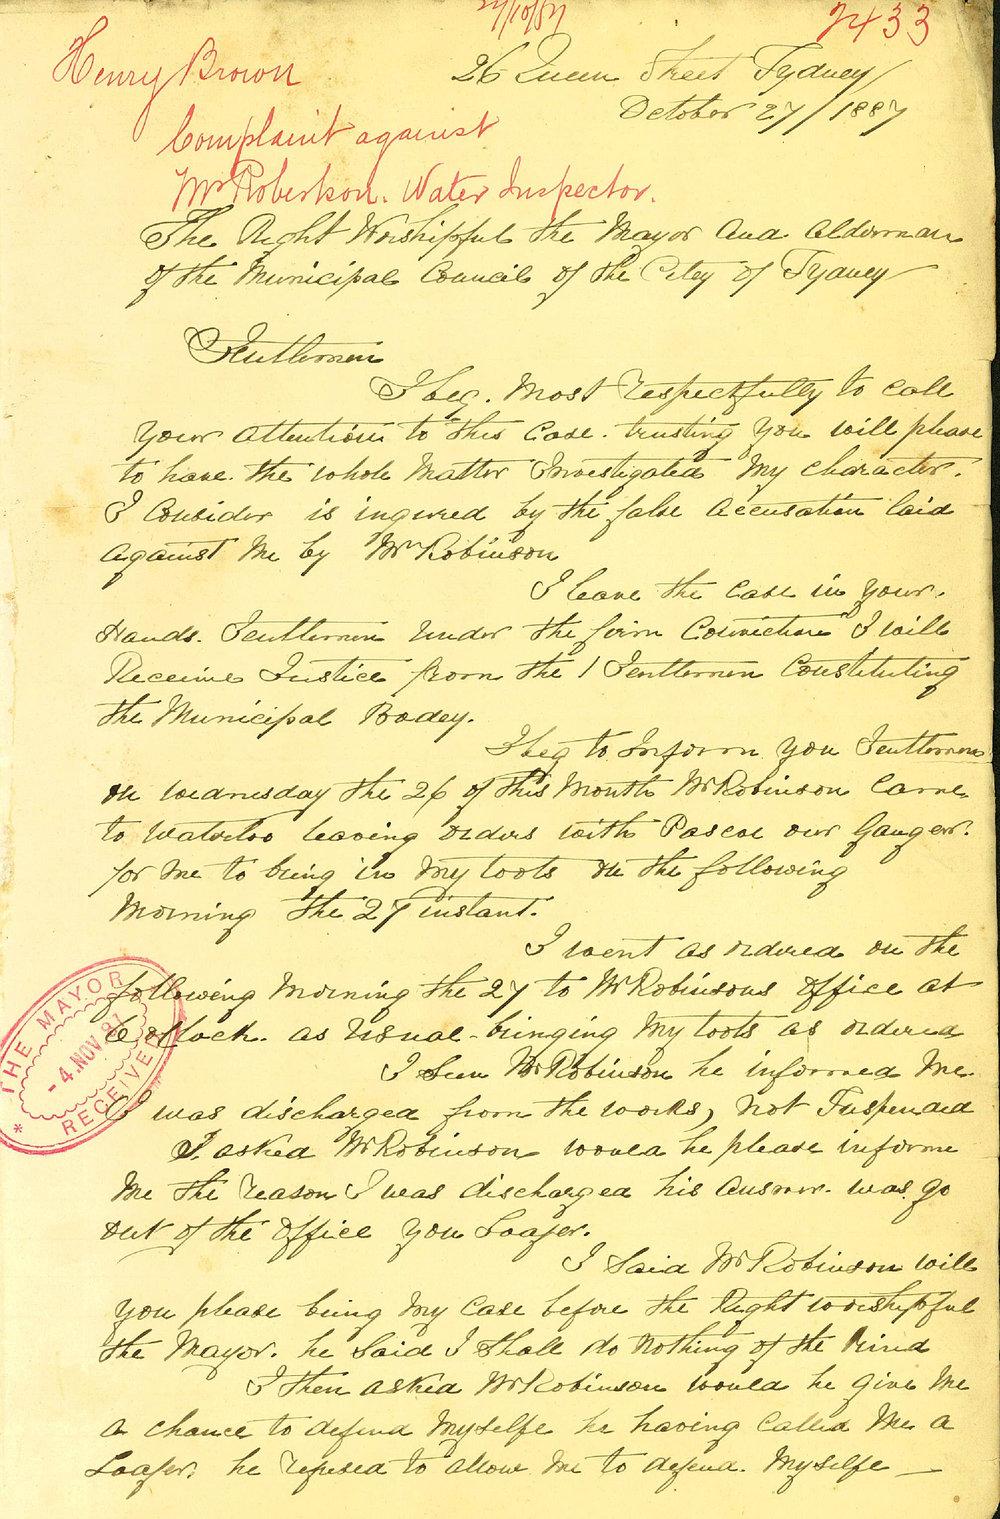 27/10/87
7433
Henry Brown
26 Queen Street Sydney
October 27/1887
Complaint against
Mr Robertson. Water Inspector.
The Right Worshipful the Mayor and Alderman
of the Municipal Council of the City of Sydney
Gentlemen
I beg. Most respectfully to call
your attention to this Case. trusting you will please
to have the whole Matter Investigated My character.
I Consider is ingured by the false Accusation laid
against Me by Mr Robinson
I leave the Case in your.
Hands. Gentlemen under the firm Conviction I will
Receive Justice from the Gentlemen Constituting
the Municipal Bodey.
I beg to Inform you Gentlemen
on Wednesday the 26 of this Month Mr Robinson Came
to Waterloo leaving orders with Pascoe our Ganger.
for Me to bring in My tools on the following
Morning the 27 instant.
I went as ordered on the
following Morning the 27 to Mr Robinsons Office at
6 oClock. as Usual - bringing My tools as ordered
I Seen Mr Robinson he informed Me
I was discharged from the works, not Suspended
I asked Mr Robinson would he please informe
Me the reason I was discharged his answer. was go
out of the office you Loafer.
I Said Mr Robinson will
you please bring My Case before the Right worshipful
the Mayor. he Said I Shall do Nothing of the kind
I then asked Mr Robinson would he give Me
a chance to defend Myselfe he having Called Me a
Loafer. he refused to allow Me to defend. Myselfe —
THE MAYOR
- 4. NOV. 87
RECEIVED
*